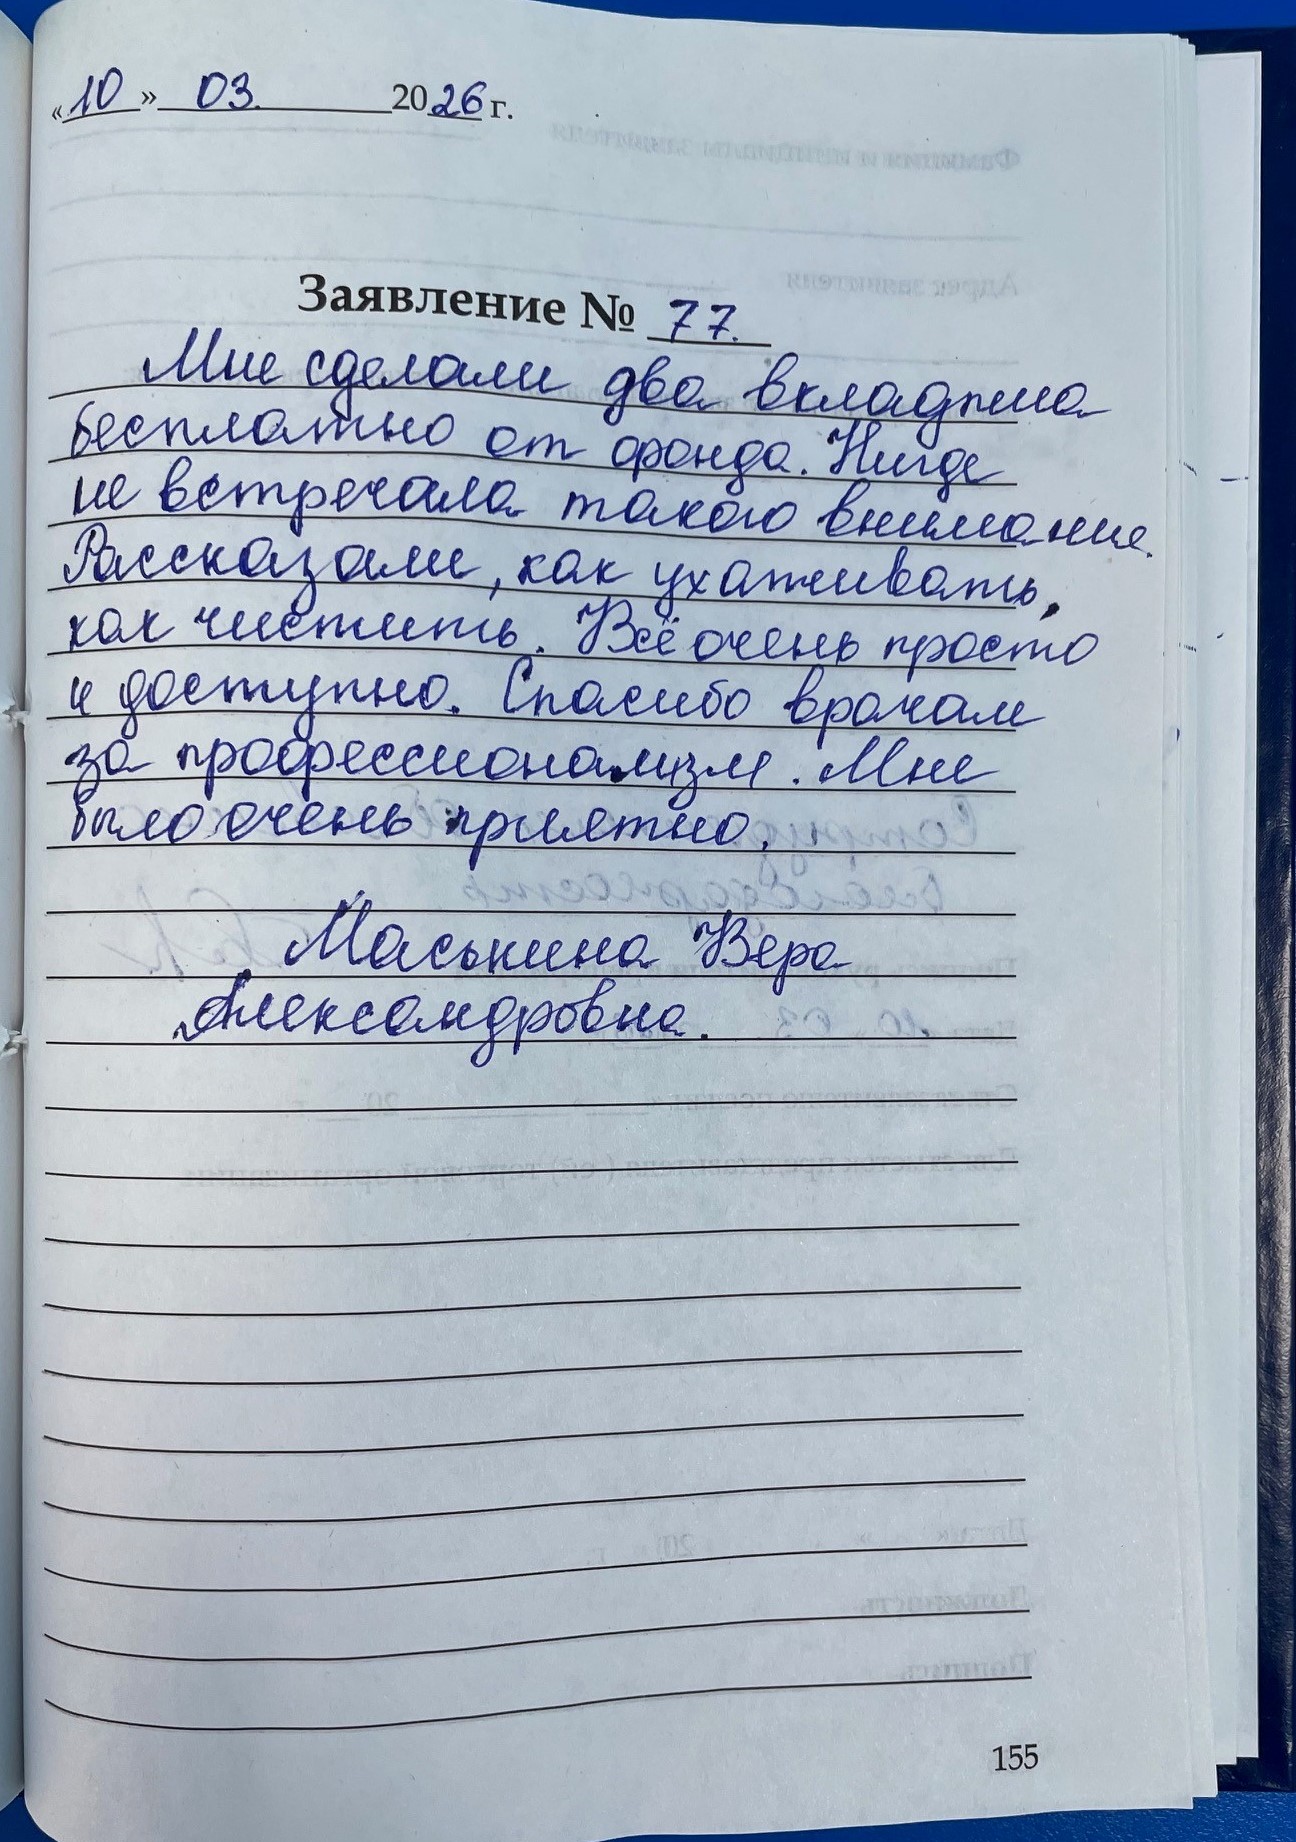 «10» 03. 2026 г.
Заявление № 77.
Мне сделали два вкладыша
бесплатно от фонда. Нигде
не встречала такого внимание.
Рассказали, как ухаживать,
как чистить. Всё очень просто
и доступно. Спасибо врачам
за профессионализм. Мне
было очень приятно.
Маськина Вера
Александровна.
155